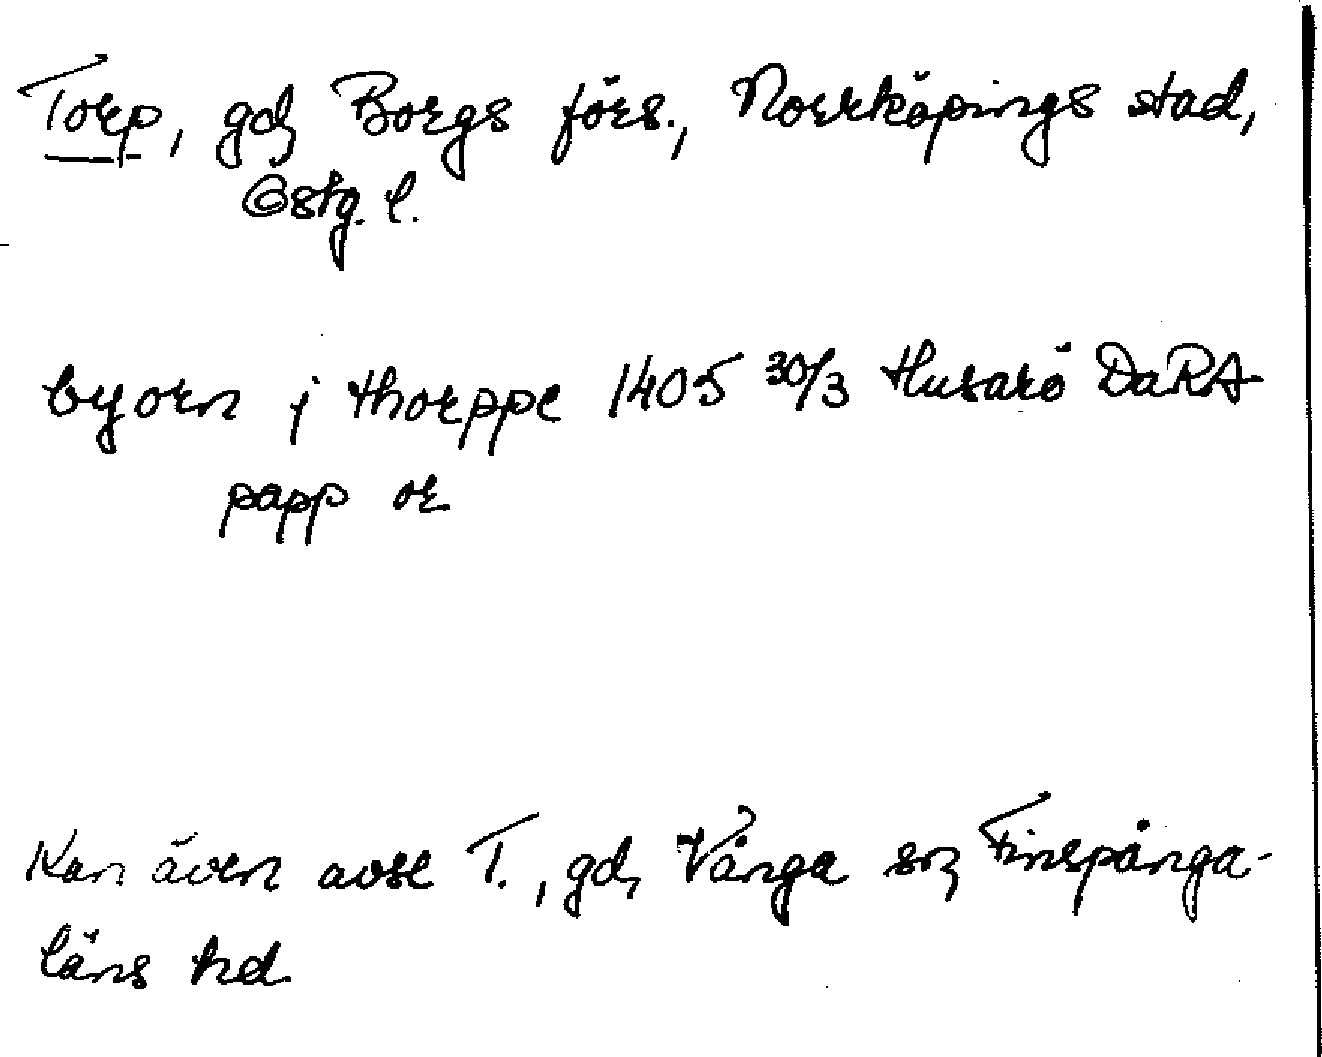 Torp, gd, Borgs förs., Norrköpings stad,
Östg. l.
byorn j thorppe 1405 30/3 Husarö DaRA
papp or
Kan även avse T., gd, Vånga sn, Finspånga-
läns hd.